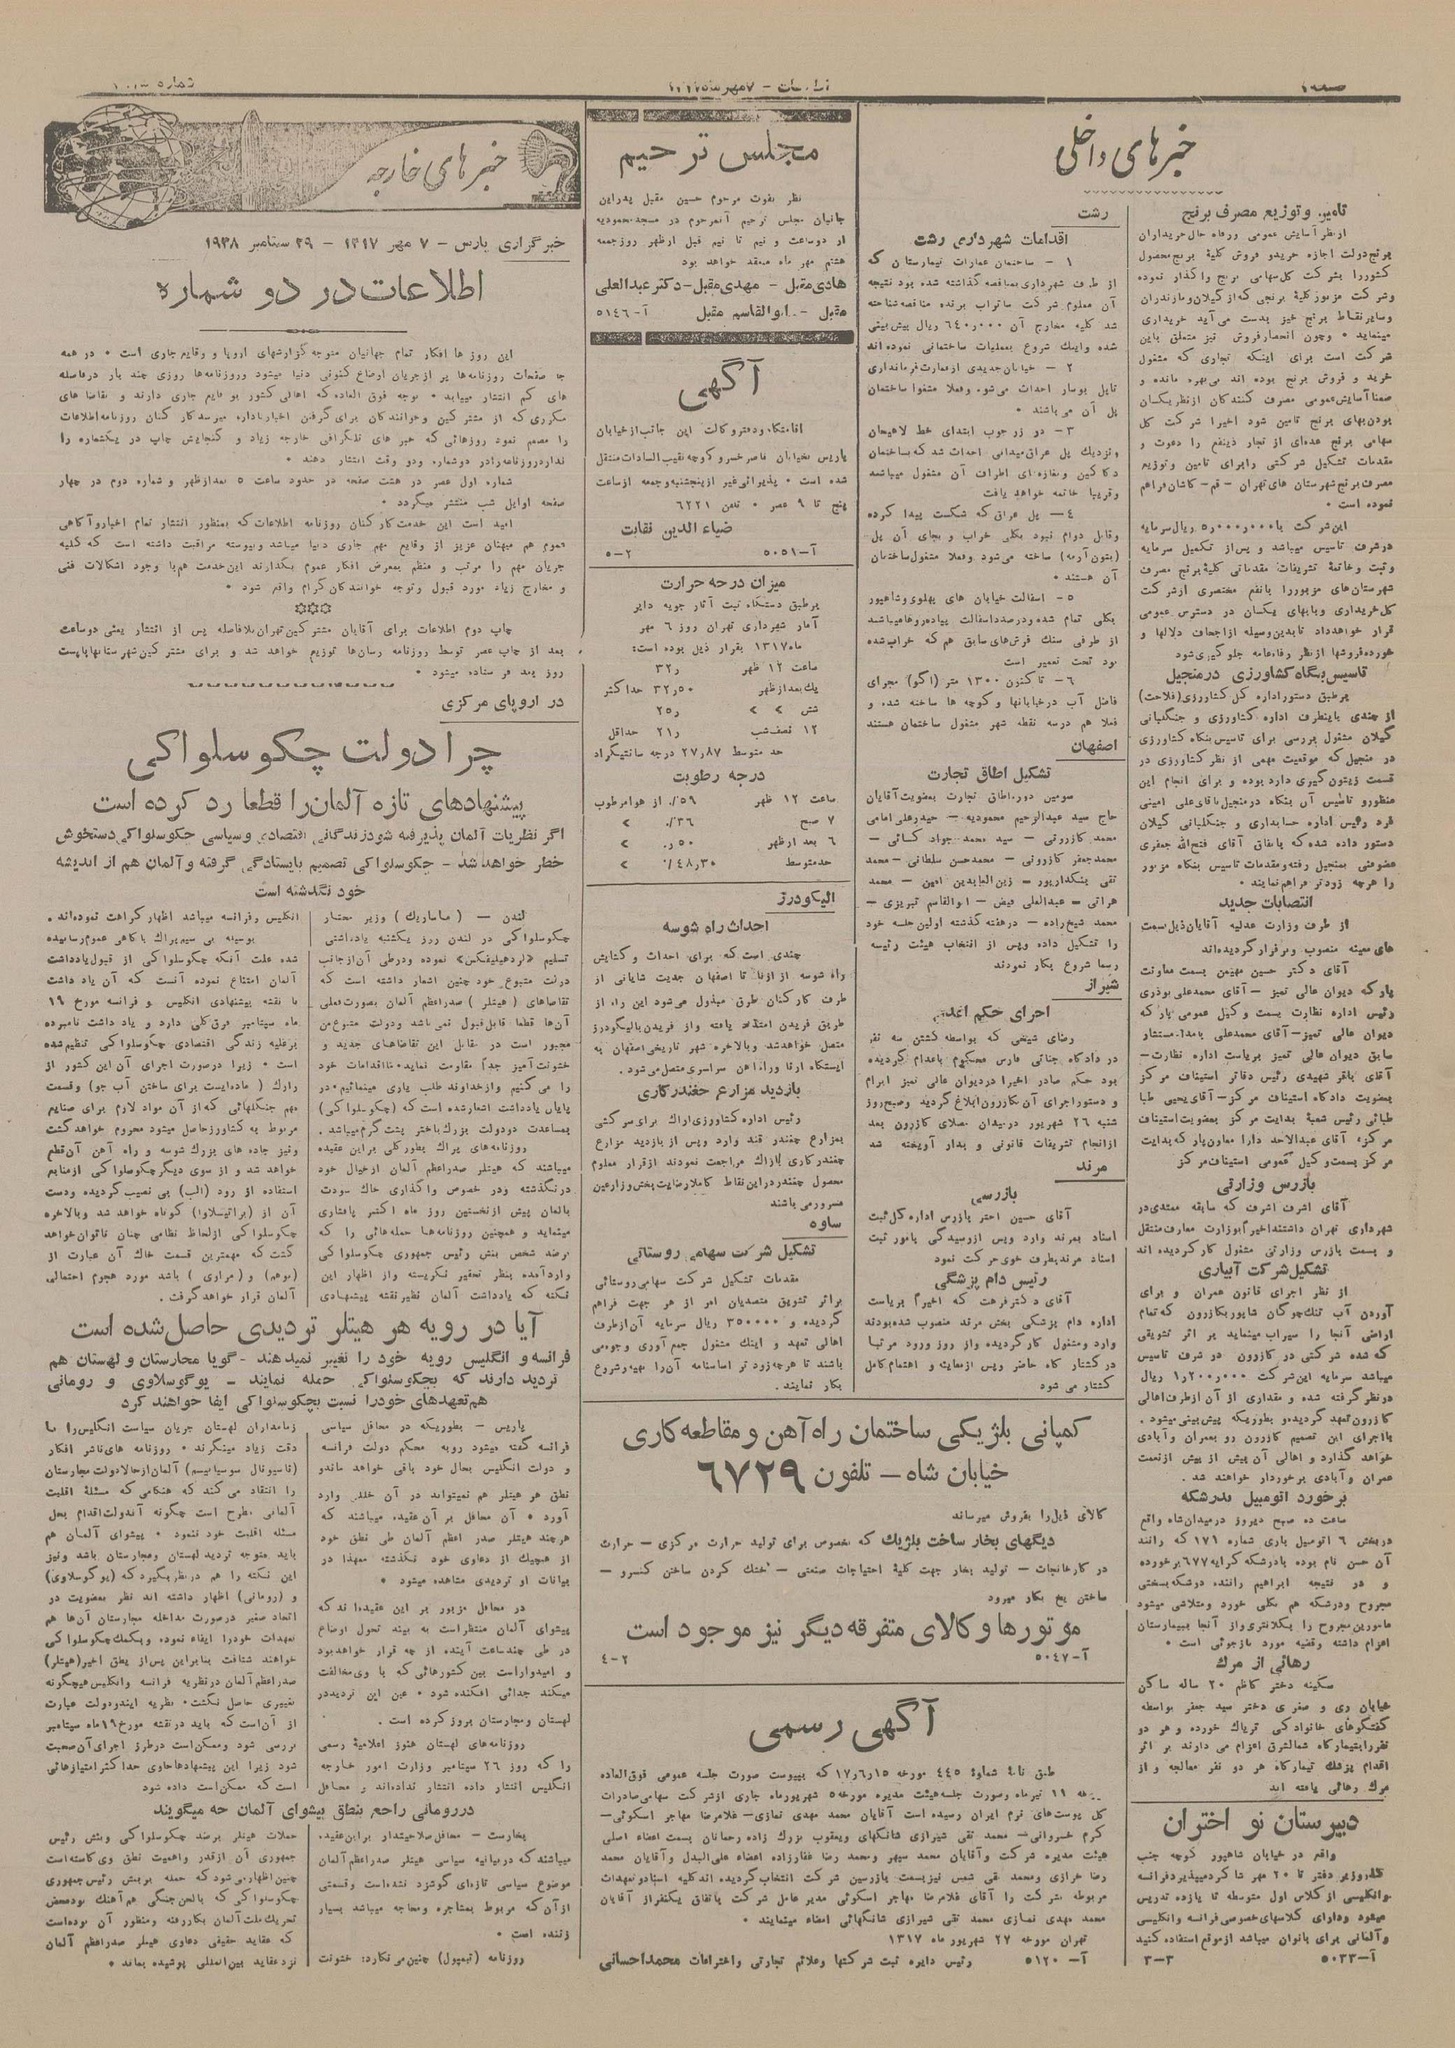 خبرهای داخلی
تامین و توزیع مصرف برنج
از نظر آسایش عمومی و رفاه حال خریداران
برنج دولت اجازه خرید و فروش کلیهٔ برنج محصول
کشور را بشرکت کل سهامی برنج واگذار نموده
و شرکت مزبور کلیهٔ برنجی که از گیلان و مازندران
و سایر نقاط برنج خیز بدست می آید خریداری
مینماید • و چون انحصار فروش نیز متعلق باین
شرکت است برای اینکه تجاری که مشغول
خرید و فروش برنج بوده اند بی بهره مانده و
ضمناً آسایش عمومی مصرف کنندگان از نظر یکسان
بودن بهای برنج تامین شود اخیراً شرکت کل
سهامی برنج عده‌ای از تجار ذینفع را دعوت و
مقدمات تشکیل شرکتی را برای تامین و توزیع
مصرف برنج شهرستان های تهران - قم - کاشان فراهم
نموده است •
این شرکت با ۵٫۰۰۰٫۰۰۰ ریال سرمایه
در شرف تاسیس میباشد و پس از تکمیل سرمایه
و ثبت و خاتمهٔ تشریفات مقدماتی کلیهٔ برنج مصرف
شهرستان‌های مزبور را بانفع مختصری از شرکت
کل خریداری و ببهای یکسان در دسترس عمومی
قرار خواهد داد تا بدین وسیله از اجحاف دلالها و
خورده فروشها از نظر رفاه عامه جلوگیری شود
تاسیس بنگاه کشاورزی در منجیل
بر طبق دستور اداره کل کشاورزی (فلاحت)
از چندی باینطرف اداره کشاورزی و جنگلبانی
گیلان مشغول بررسی برای تاسیس بنگاه کشاورزی
در منجیل که موقعیت مهمی از نظر کشاورزی در
قسمت زیتون گیری دارد بوده و برای انجام این
منظور و تاسیس آن بنگاه در منجیل باقای علی امینی
فرد رئیس اداره حسابداری و جنگلبانی گیلان
دستور داده شده که باتفاق آقای فتح‌الله جعفری
عضو فنی بمنجیل رفته و مقدمات تاسیس بنگاه مزبور
را هرچه زودتر فراهم نمایند •
انتصابات جدید
از طرف وزارت عدلیه آقایان ذیل بسمت
های معینه منصوب و برقرار گردیده‌اند
آقای دکتر حسین مهیمن بسمت معاونت
پارکه دیوان عالی تمیز - آقای محمدعلی بوذری
رئیس اداره نظارت بسمت وکیل عمومی پارکه
دیوان عالی تمیز - آقای محمدعلی بامداد مستشار
سابق دیوان عالی تمیز بریاست اداره نظارت -
آقای باقر شهیدی رئیس دفاتر استیناف مرکز
بعضویت دادگاه استیناف مرکز - آقای یحیی طبا
طبائی رئیس شعبهٔ بدایت مرکز بعضویت استیناف
مرکز، آقای عبدالاحد دارا معاون پارکه بدایت
مرکز بسمت وکیل عمومی استیناف مرکز
بازرس وزارتی
آقای اشرف اشرف که سابقه ممتدی در
شهرداری تهران داشتند اخیراً بوزارت معارف منتقل
و بسمت بازرس وزارتی مشغول کار گردیده اند
تشکیل شرکت آبیاری
از نظر اجرای قانون عمران و برای
آوردن آب تنگ چوگان شاپور بکازرون که تمام
اراضی آنجا را سیراب مینماید بر اثر تشویقی
که شده شرکتی در کازرون در شرف تاسیس
میباشد سرمایه این شرکت ۱٫۲۰۰٫۰۰۰ ریال
در نظر گرفته شده و مقداری از آن از طرف اهالی
کازرون تعهد گردیده و بطوریکه پیش بینی میشود
بااجرای این تصمیم کازرون رو بعمران و آبادی
خواهد گذارد و اهالی آن بیش از پیش از نعمت
عمران و آبادی برخوردار خواهند شد •
برخورد اتومبیل بدرشکه
ساعت ده صبح دیروز در میدان شاه واقع
در بخش ۶ اتومبیل باری شماره ۱۷۱ که راننده
آن حسن نام بوده بادرشکه کرایه ۶۷۷ برخورده
و در نتیجه ابراهیم راننده درشکه بسختی
مجروح و درشکه هم بکلی خورد و متلاشی میشود
مامورین مجروح را بکلانتری و از آنجا ببیمارستان
اعزام داشته و قضیه مورد بازجوئی است •
رهائی از مرگ
سکینه دختر کاظم ۲۰ ساله ساکن
خیابان ری و صغری دختر سید جعفر بواسطه
گفتگوهای خانوادگی تریاک خورده و هر دو
نفر را بتیمارگاه شمالشرق اعزام می دارند بر اثر
اقدام پزشک تیمارگاه هر دو نفر معالجه و از
مرگ رهائی یافته اند
دبیرستان نو اختران
واقع در خیابان شاهپور کوچه جنب
همه روزه بر دفتر تا ۲۰ مهر شاگرد میپذیرد فرانسه
و انگلیسی از کلاس اول متوسطه تا یازده تدریس
میشود و دارای کلاسهای خصوصی فرانسه و انگلیسی
و آلمانی برای بانوان میباشد از موقع استفاده کنید
آ-۵۰۳۳ ۳-۳
رشت
اقدامات شهرداری رشت
۱ - ساختمان عمارات تیمارستان که
از طرف شهرداری بمناقصه گذاشته شده بود نتیجه
آن معلوم شرکت ساتراپ برنده مناقصه شناخته
شد کلیه مخارج آن ۶۴۰٫۰۰۰ ریال پیش بینی
شده و اینک شروع بعملیات ساختمانی نموده اند
۲ - خیابان جدیدی از عمارت فرمانداری
تا پل بوسار احداث می‌شود و فعلا مشغول ساختمان
پل آن می باشند •
۳ - دو زرجوب ابتدای خط لاهیجان
و نزدیک پل عراق میدانی احداث شد که بساختمان
دکاکین و مغازه‌ای اطراف آن مشغول میباشند
و تقریبا خاتمه خواهد یافت
۴ - پل عراق که شکست پیدا کرده
و قابل دوام نبود بکلی خراب و بجای آن پل
(بتون آرمه) ساخته می‌شود و فعلا مشغول ساختمان
آن هستند •
۵ - اسفالت خیابان های پهلوی و شاهپور
بکلی تمام شده و در صدد اسفالت پیاده‌روها میباشند
از طرفی سنگ فرش‌های سابق هم که خراب شده
بود تحت تعمیر است
۶ - تا کنون ۱۳۰۰ متر (اگو) مجرای
فاضل آب در خیابانها و کوچه ها ساخته شده و
فعلا هم در سه نقطه شهر مشغول ساختمان هستند
اصفهان
تشکیل اطاق تجارت
سومین دوره اطاق تجارت بعضویت آقایان
حاج سید عبدالرحیم محمودیه - حیدرعلی امامی
محمد کازرونی - سید محمد جواد کسائی -
محمدجعفر کازرونی - محمدحسن سلطانی - محمد
تقی بنکدارپور - زین‌العابدین امین - محمد
هراتی - عبدالعلی فیض - ابوالقاسم تبریزی -
محمد شیخ‌زاده - در هفته گذشته اولین جلسه خود
را تشکیل داده و پس از انتخاب هیئت رئیسه
رسما شروع بکار نمودند
شیراز
اجرای حکم اعدام
رضای شیخی که بواسطه کشتن سه نفر
در دادگاه جنائی فارس محکوم باعدام گردیده
بود حکم صادر اخیراً در دیوان عالی تمیز ابرام
و دستور اجرای آن بکازرون ابلاغ گردید و صبح روز
شنبه ۲۶ شهریور در میدان مصلای کازرون بعد
از انجام تشریفات قانونی و بدار آویخته شد
مرند
بازرسی
آقای حسین اختر بازرس اداره کل ثبت
اسناد بمرند وارد و پس از رسیدگی بامور ثبت
اسناد مرند بطرف خوی حرکت نمود
رئیس دام پزشگی
آقای دکتر فرهت که اخیراً بریاست
اداره دام پزشکی بخش مرند منصوب شده بودند
وارد و مشغول کار گردیده و از روز ورود مرتبا
در کشتار گاه حاضر و پس از معاینه و اهتمام کامل
کشتار می شود
مجلس ترحیم
نظر بفوت مرحوم حسین مقبل پدر این
جانبان مجلس ترحیم آنمرحوم در مسجد محمودیه
از دو ساعت و نیم تا نیم قبل از ظهر روز جمعه
هشتم مهر ماه منعقد خواهد بود
هادی مقبل - مهدی مقبل - دکتر عبدالعلی
مقبل - ابوالقاسم مقبل آ-۵۱۴۶
آگهی
اقامتگاه و دفتر وکالت این جانب از خیابان
پاریس بخیابان ناصرخسرو کوچه نقیب السادات منتقل
شده است • پذیرائی غیر از پنجشنبه و جمعه از ساعت
پنج تا ۹ عصر • تلفن ۶۲۲۱
ضیاء الدین نقابت
آ-۵۰۵۱ ۲-۵
میزان درجه حرارت
بر طبق دستگاه ثبت آثار جویه دایر
آمار شهرداری تهران روز ۶ مهر
ماه ۱۳۱۷ بقرار ذیل بوده است:
ساعت ۱۲ ظهر ۳۲٫
یک بعد از ظهر ۳۲٫۵۰ حداکثر
شش » » ۲۵٫
۱۲ نصف شب ۲۱٫ حداقل
حد متوسط ۲۷٫۸۷ درجه سانتیگراد
درجه رطوبت
ساعت ۱۲ ظهر ۵۹٪ از هوا مرطوب
۷ صبح ۳۶٪ »
۶ بعد از ظهر ۵۰٪ »
حد متوسط ۴۸٫۳۰٪ »
الیگودرز
احداث راه شوسه
چندی است که برای احداث و گشایش
راه شوسه از ازنا تا اصفهان جدیت شایانی از
طرف کارکنان طرق مبذول می‌شود این راه از
طریق فریدن امتداد یافته و از فریدن بالیگودرز
متصل خواهد شد و بالاخره شهر تاریخی اصفهان به
ایستگاه ازنا و راه‌آهن سراسری متصل می‌شود.
بازدید مزارع چغندرکاری
رئیس اداره کشاورزی اراک برای سرکشی
بمزارع چغندر قند وارد و پس از بازدید مزارع
چغندر کاری باراک مراجعت نمودند از قرار معلوم
محصول چغندر در این نقاط کاملا رضایت بخش و زارعین
مسرور می باشند
ساوه
تشکیل شرکت سهامی روستائی
مقدمات تشکیل شرکت سهامی روستائی
بر اثر تشویق متصدیان امر از هر جهت فراهم
گردیده و ۳۵۰۰۰۰ ریال سرمایه آن از طرف
اهالی تعهد و اینک مشغول جمع آوری وجوه می
باشند تا هرچه زود تر اساسنامه آن را تهیه و شروع
بکار نمایند.
کمپانی بلژیکی ساختمان راه آهن و مقاطعه کاری
خیابان شاه - تلفون ۶۷۲۹
کالای ذیل را بفروش میرساند
دیگهای بخار ساخت بلژیک که مخصوص برای تولید حرارت مرکزی - حرارت
در کارخانجات - تولید بخار جهت کلیهٔ احتیاجات صنعتی - خنک کردن ساختن کنسرو -
ساختن یخ بکار میرود
موتورها و کالای متفرقه دیگر نیز موجود است
آ-۵۰۴۷ ۲-۴
آگهی رسمی
طبق نامهٔ شمارهٔ ۴۴۵ مورخه ۱۷٫۶٫۱۵ که بپیوست صورت جلسه عمومی فوق‌العاده
۱۱ تیرماه و صورت جلسه هیئت مدیره مورخه ۵ شهریورماه جاری از شرکت سهامی صادرات
کل پوست‌های نرم ایران رسیده است آقایان محمد مهدی نمازی - غلامرضا مهاجر اسکوئی -
کرم خسروانی - محمد تقی شیرازی شانگهای و یعقوب بزرگ زاده رحمانان بسمت اعضاء اصلی
هیئت مدیره شرکت و آقایان محمد سپهر و محمد رضا غفارزاده اعضاء علی‌البدل و آقایان محمد
رضا خرازی و محمد تقی شمس نیز بسمت بازرسین شرکت انتخاب گردیده‌اند کلیه اسناد و تعهدات
مربوطه بشرکت را آقای غلامرضا مهاجر اسکوئی مدیر عامل شرکت باتفاق یکنفر از آقایان
محمد مهدی نمازی محمد تقی شیرازی شانگهائی امضاء مینمایند •
تهران مورخه ۲۷ شهریور ماه ۱۳۱۷
آ-۵۱۲۰ رئیس دایره ثبت شرکتها و علائم تجارتی و اختراعات محمد احسانی
خبرهای خارجه
خبرگزاری پارس - ۷ مهر ۱۳۱۷ - ۲۹ سپتامبر ۱۹۳۸
اطلاعات در دو شماره
این روز ها افکار تمام جهانیان متوجه گزارشهای اروپا و وقایع جاری است • در همه
جا صفحات روزنامه‌ها پر از جریان اوضاع کنونی دنیا میشود و روزنامه‌ها روزی چند بار در فاصله
های کم انتشار مییابد • توجه فوق العاده که اهالی کشور بوقایع جاری دارند و تقاضا های
مکرری که از مشترکین و خوانندگان برای گرفتن اخبار باداره میرسد کارکنان روزنامه اطلاعات
را مصمم نمود روزهائی که خبر های تلگرافی خارجه زیاد و گنجایش چاپ در یکشماره را
ندارد روزنامه را در دو شماره و دو وقت انتشار دهند •
شماره اول عصر در هشت صفحه در حدود ساعت ۵ بعد از ظهر و شماره دوم در چهار
صفحه اوایل شب منتشر میگردد •
امید است این خدمت کارکنان روزنامه اطلاعات که بمنظور انتشار تمام اخبار و آگاهی
عموم هم میهنان عزیز از وقایع مهم جاری دنیا میباشد و پیوسته مراقبت داشته است که کلیه
جریان مهم را مرتب و منظم بمعرض افکار عموم بگذارند این خدمت هم با وجود اشکالات فنی
و مخارج زیاد مورد قبول و توجه خوانندگان گرام واقع شود •
چاپ دوم اطلاعات برای آقایان مشترکین تهران بلافاصله پس از انتشار یعنی دو ساعت
بعد از چاپ عصر توسط روزنامه رسان‌ها توزیع خواهد شد و برای مشترکین شهرستانها باپست
روز بعد فرستاده میشود •
در اروپای مرکزی
چرا دولت چکوسلواکی
پیشنهادهای تازه آلمان را قطعا رد کرده است
اگر نظریات آلمان پذیرفته شود زندگانی اقتصادی و سیاسی چکوسلواکی دستخوش
خطر خواهد شد - چکوسلواکی تصمیم بایستادگی گرفته و آلمان هم از اندیشه
خود نگذشته است
لندن - (مازاریک) وزیر مختار
چکوسلواکی در لندن روز یکشنبه یادداشتی
تسلیم «لرد هیلیفکس» نموده و در طی آن از جانب
دولت متبوع خود چنین اشعار داشته است که
تقاضاهای (هیتلر) صدراعظم آلمان بصورت فعلی
آن‌ها قطعا قابل قبول نمی باشد و دولت متبوع من
مجبور است در مقابل این تقاضاهای جدید و
خشونت آمیز جداً مقاومت نماید • ما اقدامات خود
را می‌کنیم و از خداوند طلب یاری مینمائیم • در
پایان یادداشت اشعار شده است که (چکوسلواکی)
بمساعدت دو دولت بزرگ باختر پشت گرم میباشد.
روزنامه‌های پراک بطور کلی بر این عقیده
میباشند که هیتلر صدراعظم آلمان از خیال خود
درنگذشته و در خصوص واگذاری خاک سودت
بالمان پیش از نخستین روز ماه اکتبر پافشاری
مینماید و همچنین روزنامه‌ها حمله‌هائی را که
برضد شخص بنش رئیس جمهوری چکوسلواکی
وارد آمده بنظر تحقیر نگریسته و از اظهار این
نکته که یادداشت آلمان نظیر نقشه پیشنهادی
انگلیس و فرانسه میباشد اظهار کراهت نموده‌اند.
بوسیله بی سیم پراک باگاهی عموم رسانیده
شده علت آنکه چکوسلواکی از قبول یادداشت
آلمان امتناع نموده آنست که آن یاد داشت
با نقشه پیشنهادی انگلیس و فرانسه مورخ ۱۹
ماه سپتامبر فرق کلی دارد و یاد داشت نامبرده
بر علیه زندگی اقتصادی چکوسلواکی تنظیم شده
است • زیرا در صورت اجرای آن این کشور از
رازک (ماده‌ایست برای ساختن آب جو) و قسمت
مهم جنگلهائی که از آن مواد لازم برای صنایع
مربوط به کشاورز حاصل میشود محروم خواهد گشت
و نیز جاده های بزرگ شوسه و راه آهن آن قطع
خواهد شد و از سوی دیگر چکوسلواکی از منابع
استفاده از رود (الب) بی نصیب گردیده و دست
آن از (براتیسلاوا) کوتاه خواهد شد و بالاخره
چکوسلواکی از لحاظ نظامی چنان ناتوان خواهد
گشت که مهمترین قسمت خاک آن عبارت از
(بوهم) و (مراوی) باشد مورد هجوم احتمالی
آلمان قرار خواهد گرفت.
آیا در رویه هر هیتلر تردیدی حاصل شده است
فرانسه و انگلیس رویه خود را تغییر نمیدهند - گویا مجارستان و لهستان هم
تردید دارند که بچکوسلواکی حمله نمایند - یوگوسلاوی و رومانی
هم تعهدهای خود را نسبت بچکوسلواکی ایفا خواهند کرد
پاریس - بطوریکه در محافل سیاسی
فرانسه گفته میشود رویه محکم دولت فرانسه
و دولت انگلیس بحال خود باقی خواهد ماند و
نطق هر هیتلر هم نمیتواند در آن خللی وارد
آورد • آن محافل بر آن عقیده میباشند که
هرچند هیتلر صدر اعظم آلمان طی نطق خود
از هیچیک از دعاوی خود نگذشته معهذا در
بیانات او تردیدی مشاهده میشود •
در محافل مزبور بر این عقیده‌اند که
پیشوای آلمان منتظر است به بیند تحول اوضاع
در طی چند ساعت آینده از چه قرار خواهد بود
و امیدوار است بین کشورهائی که با وی مخالفت
میکند جدائی افکنده شود • عین این تردید در
لهستان و مجارستان بروز کرده است.
روزنامه‌های لهستان هنوز اعلامیهٔ رسمی
را که روز ۲۶ سپتامبر وزارت امور خارجه
انگلیس انتشار داده انتشار نداده‌اند و محافل
زمامداران لهستان جریان سیاست انگلیس را با
دقت زیاد مینگرند • روزنامه های ناشر افکار
(ناسیونال سوسیالیسم) آلمان از حالا دولت مجارستان
را انتقاد می کند که هنگامی که مسئله اقلیت
آلمانی مطرح است چگونه آندولت اقدام بحل
مسئله اقلیت خود ننمود • پیشوای آلمان هم
باید متوجه تردید لهستان و مجارستان باشد و نیز
این نکته را هم در نظر بگیرد که (یوگوسلاوی)
و (رومانی) اظهار داشته اند نظر بعضویت در
اتحاد صغیر در صورت مداخله مجارستان آن‌ها هم
تعهدات خود را ایفاء نموده و بکمک چکوسلواکی
خواهند شتافت بنابراین پس از نطق اخیر (هیتلر)
صدراعظم آلمان در نظریه فرانسه و انگلیس هیچگونه
تغییری حاصل نگشت • نظریه ایندو دولت عبارت
از آن است که باید در نقشه مورخ ۱۹ ماه سپتامبر
بررسی شود و ممکن است در طرز اجرای آن صحبت
شود زیرا این پیشنهادها حاوی حداکثر امتیازهائی
است که ممکن است داده شود
در رومانی راجع بنطق پیشوای آلمان چه میگویند
بخارست - محافل صلاحیتدار بر این عقیده
میباشند که در میانیه سیاسی هیتلر صدراعظم آلمان
موضوع سیاسی تازه‌ای گوشزد نشده است و قسمتی
از آن که مربوط بمشاجره و محاجه میباشد بسیار
زننده است •
روزنامه (تیمپول) چنین می نگارد: خشونت
حملات هیتلر برضد چکوسلواکی و بنش رئیس
جمهوری آن از قدر و اهمیت نطق وی کاسته است
چنین اظهار می‌شود که حمله بر بنش رئیس جمهوری
چکوسلواکی که بالحن جنگی هم آهنگ بود محض
تحریک ملت آلمان بکار رفته و منظور آن بوده است
که عقاید حقیقی دعاوی هیتلر صدراعظم آلمان
نزد عقاید بین‌المللی پوشیده بماند •